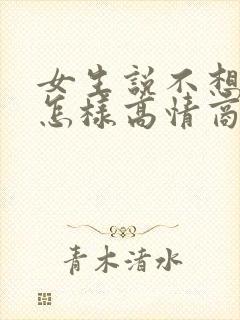 女生说不想
怎样高情商
青木清水